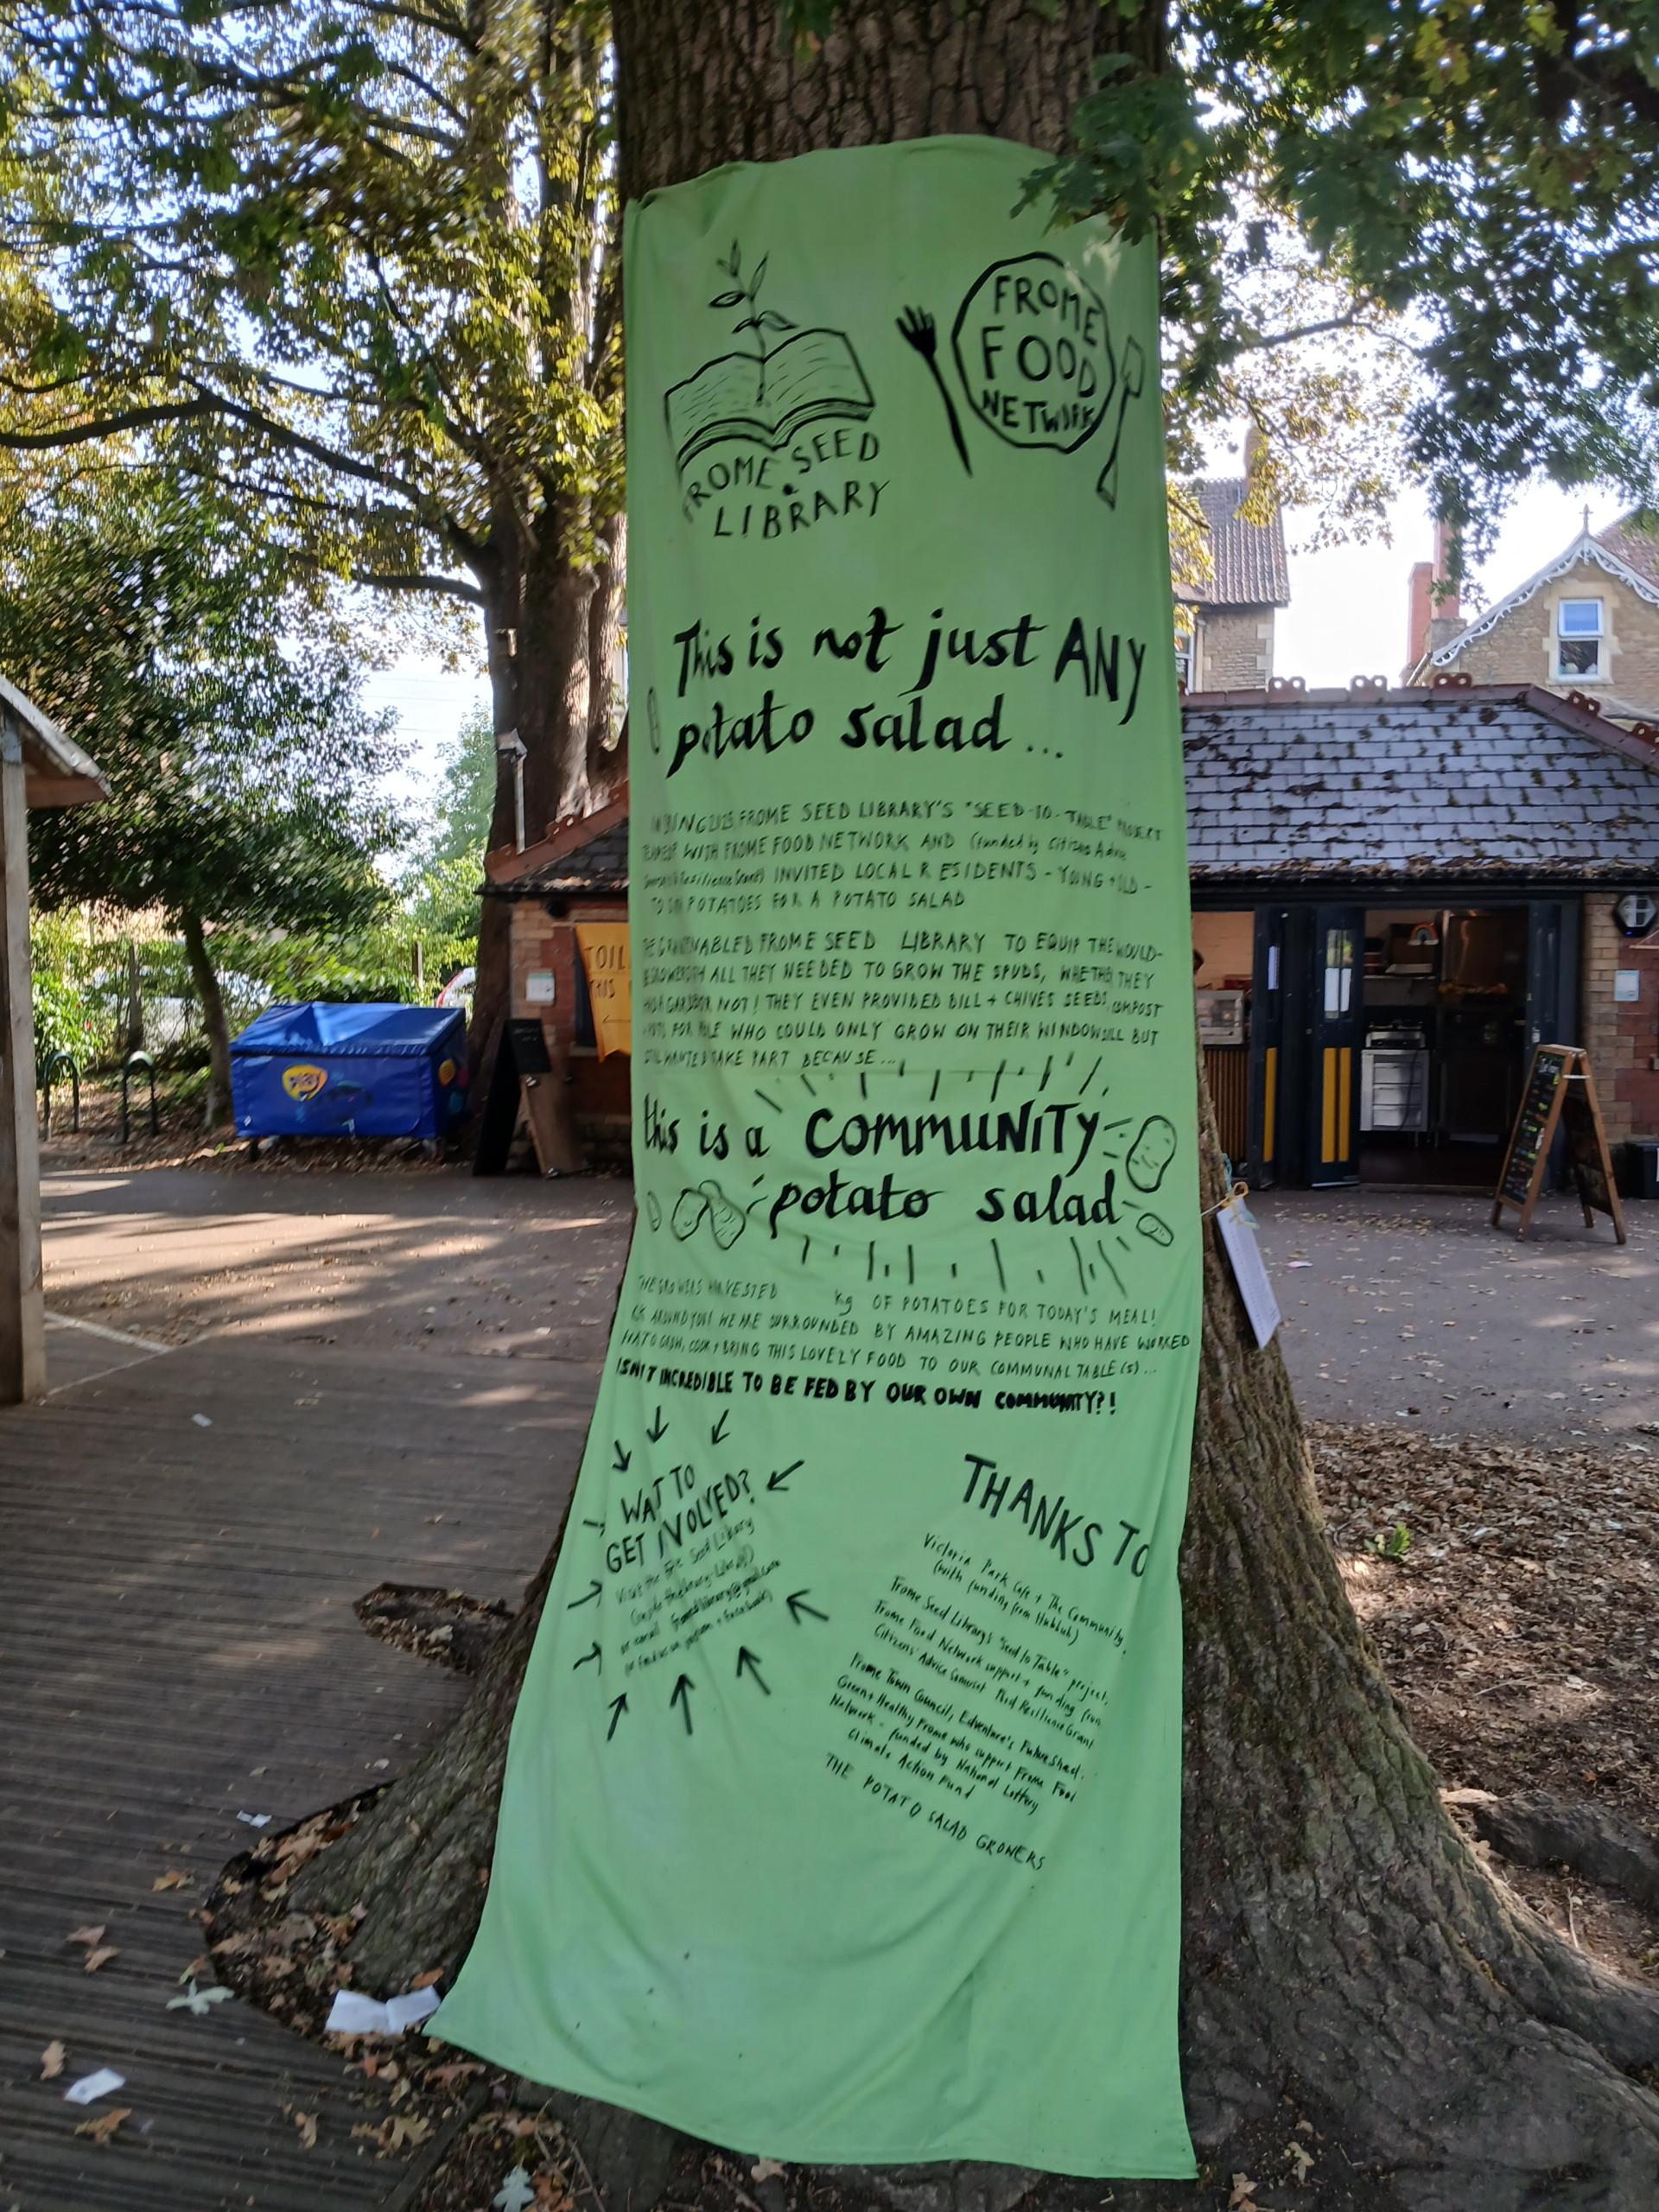 FROME SEED
LIBRARY
FROME
FOOD
NETWORK
This is not just ANY
potato salad...
FROME SEED LIBRARY'S "SEED-TO-TABLE" PROJECT
WITH FROME FOOD NETWORK AND (funded by Citizens Advice
INVITED LOCAL RESIDENTS - YOUNG + OLD -
POTATOES FOR A POTATO SALAD
FROME SEED LIBRARY TO EQUIP THE WOULD-
ALL THEY NEEDED TO GROW THE SPUDS, WHETHER THEY
NOT! THEY EVEN PROVIDED DILL + CHIVES SEEDS, COMPOST
WHO COULD ONLY GROW ON THEIR WINDOWSILL BUT
TAKE PART BECAUSE...
this is a COMMUNITY
potato salad
THE GROWERS HARVESTED kg OF POTATOES FOR TODAY'S MEAL!
AROUND YOU! WE ARE SURROUNDED BY AMAZING PEOPLE WHO HAVE WORKED
COOK + BRING THIS LOVELY FOOD TO OUR COMMUNAL TABLE(S)...
ISN'T IT INCREDIBLE TO BE FED BY OUR OWN COMMUNITY?!
WAT TO
GET IVOLVED?
Visit the Seed Library
or email
THANKS TO
Victoria Park Cafe + The Community
(with funding from Hubbub)
Frome Seed Library's "Seed to Table" project,
Frome Food Network support + funding from
Citizens' Advice Somerset Food Resilience Grant
Frome Town Council, Edventure's Future Shed,
Green + Healthy Frome who support Frome Food
Network - funded by National Lottery
Climate Action Fund
THE POTATO SALAD GROWERS
THIS
play